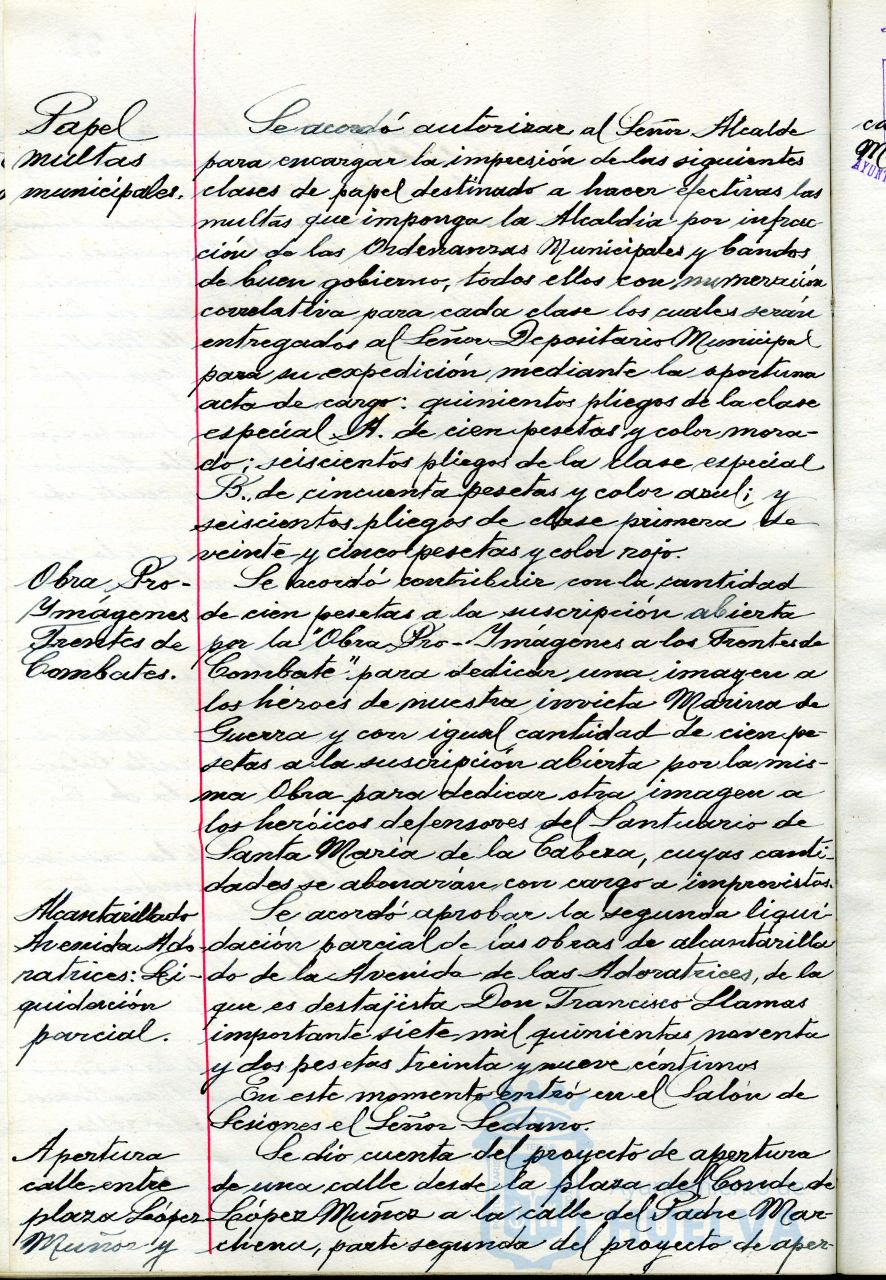 Papel
multas
municipales.
Se acordó autorizar al Señor Alcalde
para encargar la impresión de las siguientes
clases de papel destinado a hacer efectivas las
multas que imponga la Alcaldía por infrac
ción de las Ordenanzas Municipales y bandos
de buen gobierno, todos ellos con numeración
correlativa para cada clase los cuales serán
entregados al Señor Depositario Municipal
para su expedición mediante la oportuna
acta de cargo: quinientos pliegos de la clase
especial A. de cien pesetas y color mora-
do; seiscientos pliegos de la clase especial
B. de cincuenta pesetas y color azul; y
seiscientos pliegos de clase primera de
veinte y cinco pesetas y color rojo.
Obra Pro-
Ymágenes
Frentes de
Combates.
Se acordó contribuir con la cantidad
de cien pesetas a la suscripción abierta
por la "Obra Pro-Ymágenes a los Frentes de
Combate" para dedicar una imagen a
los héroes de nuestra invicta Marina de
Guerra y con igual cantidad de cien pe-
setas a la suscripción abierta por la mis-
ma Obra para dedicar otra imagen a
los heróicos defensores del Santuario de
Santa María de la Cabeza, cuyas canti-
dades se abonarán con cargo a imprevistos.
Alcantarillado
Avenida Ado
ratrices: Li-
quidación
parcial.
Se acordó aprobar la segunda liqui-
dación parcial de las obras de alcantarilla
do de la Avenida de las Adoratrices, de la
que es destajista Don Francisco Llamas
importante siete mil quinientas noventa
y dos pesetas treinta y nueve céntimos
En este momento entró en el Salón de
Sesiones el Señor Sedano.
Apertura
calle entre
plaza López
Muñoz y
Se dio cuenta del proyecto de apertura
de una calle desde la plaza del Conde de
López Muñoz a la calle del Padre Mar-
chena, parte segunda del proyecto de aper-
Ayuntamiento de
HUELVA